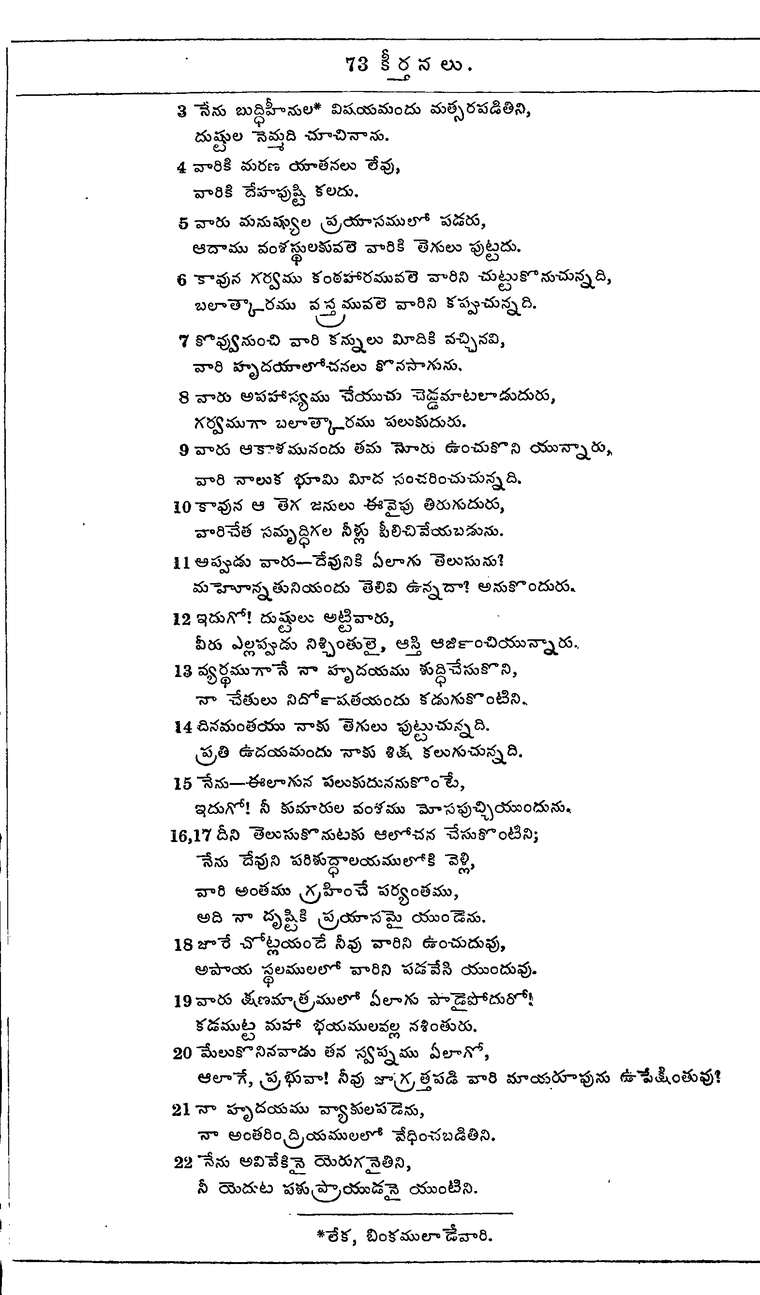 73 కీర్తనలు.
3 నేను బుద్ధిహీనుల* విషయమందు మత్సరపడితిని,
దుష్టుల నెమ్మది చూచినాను.
4 వారికి మరణ యాతనలు లేవు,
వారికి దేహపుష్టి కలదు.
5 వారు మనుష్యుల ప్రయాసములో పడరు,
ఆదాము వంశస్థులకువలె వారికి తెగులు పుట్టదు.
6 కావున గర్వము కంఠహారమువలె వారిని చుట్టుకొనుచున్నది,
బలాత్కారము వస్త్రమువలె వారిని కప్పుచున్నది.
7 కొవ్వునుంచి వారి కన్నులు మీదికి వచ్చినవి,
వారి హృదయాలోచనలు కొనసాగును.
8 వారు అపహాస్యము చేయుచు చెడ్డమాటలాడుదురు,
గర్వముగా బలాత్కారము పలుకుదురు.
9 వారు ఆకాశమునందు తమ నోరు ఉంచుకొని యున్నారు,
వారి నాలుక భూమి మీద సంచరించుచున్నది.
10 కావున ఆ తెగ జనులు ఈవైపు తిరుగుదురు,
వారిచేత సమృద్ధిగల నీళ్లు పీలిచివేయబడును.
11 అప్పుడు వారు—దేవునికి ఏలాగు తెలుసును?
మహోన్నతునియందు తెలివి ఉన్నదా? అనుకొందురు.
12 ఇదుగో! దుష్టులు అట్టివారు,
వీరు ఎల్లప్పుడు నిశ్చింతులై, ఆస్తి ఆర్జించియున్నారు.
13 వ్యర్థముగానే నా హృదయము శుద్ధిచేసుకొని,
నా చేతులు నిర్దోషతయందు కడుగుకొంటిని.
14 దినమంతయు నాకు తెగులు పుట్టుచున్నది.
ప్రతి ఉదయమందు నాకు శిక్ష కలుగుచున్నది.
15 నేను—ఈలాగున పలుకుదుననుకొంటే,
ఇదుగో! నీ కుమారుల వంశము మోసపుచ్చియుందును.
16,17 దీని తెలుసుకొనుటకు ఆలోచన చేసుకొంటిని;
నేను దేవుని పరిశుద్ధాలయములోకి వెళ్లి,
వారి అంతము గ్రహించే పర్యంతము,
అది నా దృష్టికి ప్రయాసమై యుండెను.
18 జారే చోట్లయందే నీవు వారిని ఉంచుదువు,
అపాయ స్థలములలో వారిని పడవేసి యుందువు.
19 వారు క్షణమాత్రములో ఏలాగు పాడైపోదురో!
కడముట్ట మహా భయములవల్ల నశింతురు.
20 మేలుకొనినవాడు తన స్వప్నము ఏలాగో,
ఆలాగే, ప్రభువా! నీవు జాగ్రత్తపడి వారి మాయరూపును ఉపేక్షింతువు?
21 నా హృదయము వ్యాకులపడెను,
నా అంతరింద్రియములలో వేధించబడితిని.
22 నేను అవివేకినై యెరుగనైతిని,
నీ యెదుట పశుప్రాయుడనై యుంటిని.
*లేక, బింకములాడేవారి.